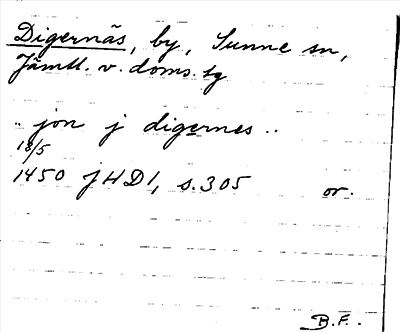 Digernäs, by, Sunne sn,
Jämtl. v. doms. tg
.. jon j digernes ..
18/5
1450 JHD1, s. 305 or.
B.F.